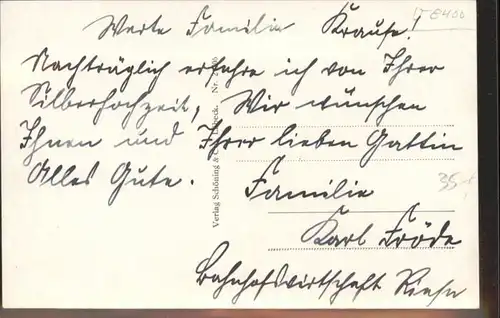 Werte Familie Krause!
IT 8400
Nachträglich erfahre ich von Ihrer
Silberhochzeit, Wir wünschen
Ihnen und Ihrer lieben Gattin
Alles Gute.
Familie
Karl Fröde
Bahnhofswirtschaft
Verlag Schöning & Co., Lübeck. Nr.
35